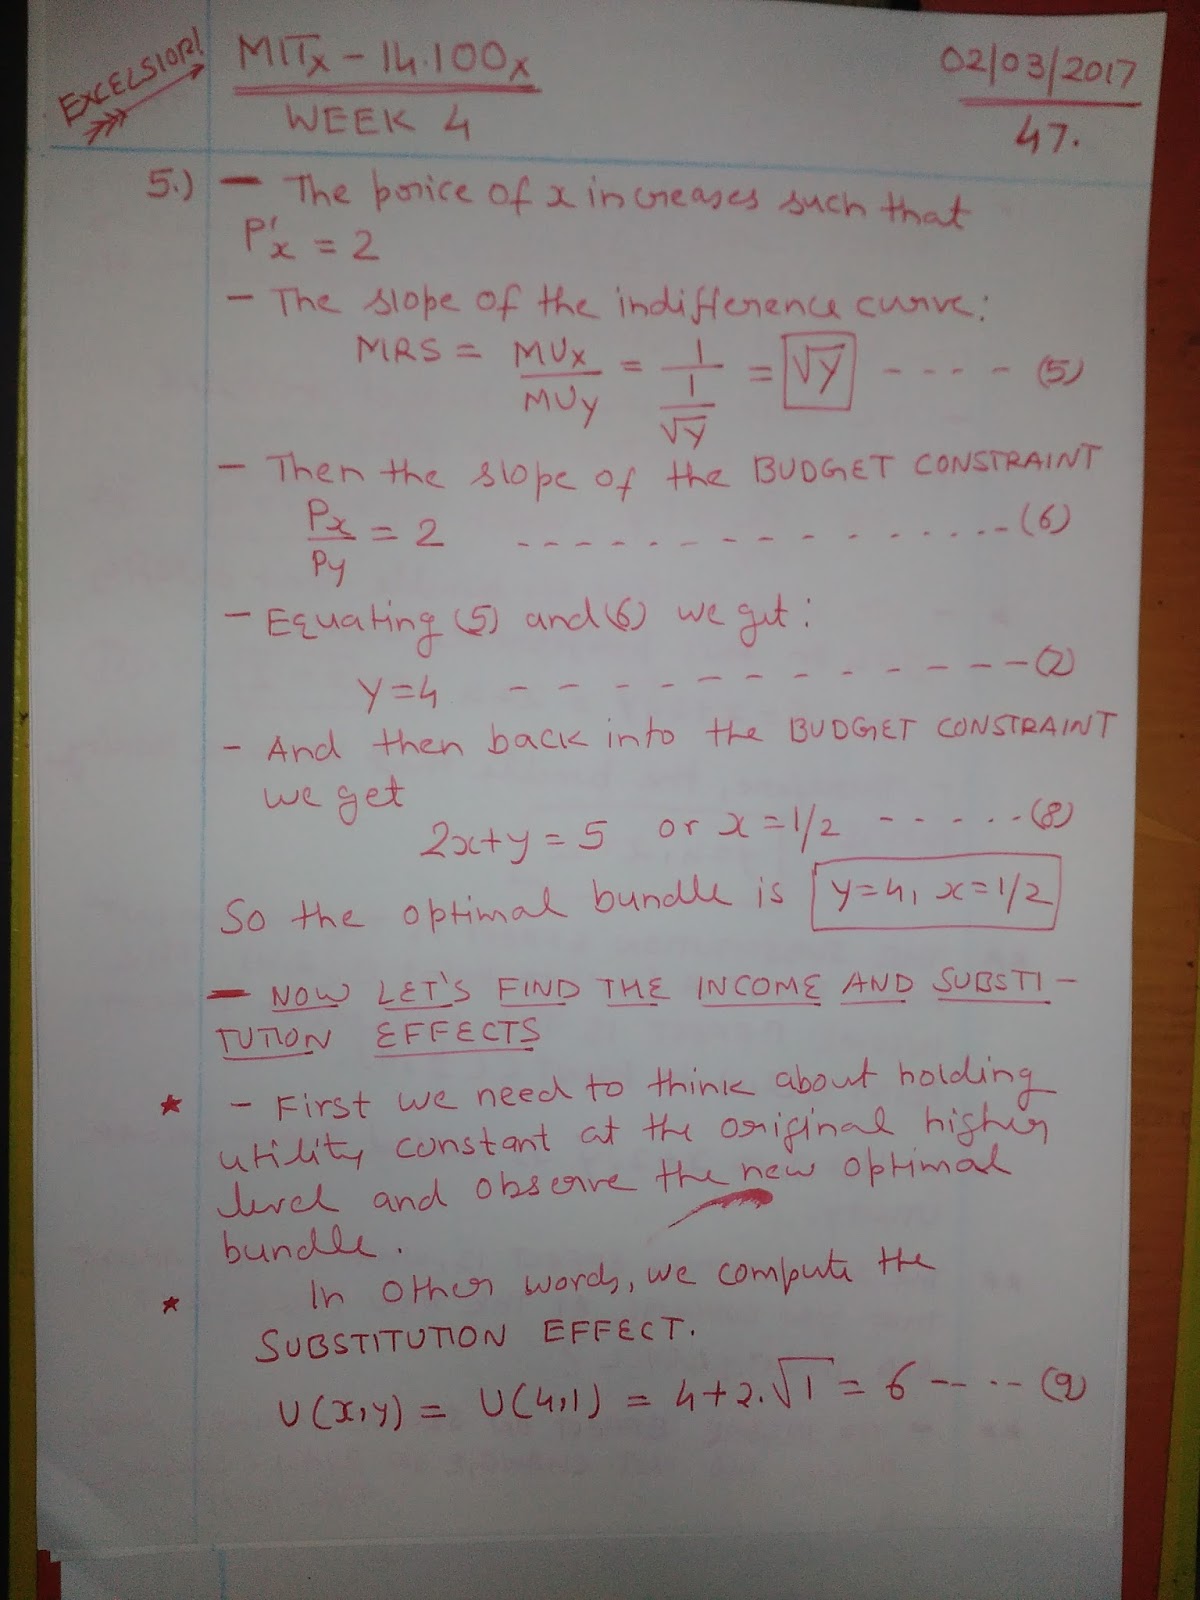 EXCELSIOR!
MITx - 14.100x
WEEK 4
02/03/2017
47.
5.) - The price of x increases such that
P'x = 2
- The slope of the indifference curve:
MRS = MUx/MUy = 1/(1/√y) = √y ---- (5)
- Then the slope of the BUDGET CONSTRAINT
Px/Py = 2 --------------- (6)
- Equating (5) and (6) we get:
y=4 ------------ (2)
- And then back into the BUDGET CONSTRAINT
we get
2x+y = 5 or x = 1/2 ------ (8)
So the optimal bundle is y=4, x=1/2
- NOW LET'S FIND THE INCOME AND SUBSTI-
TUTION EFFECTS
★ - First we need to think about holding
utility constant at the original higher
level and observe the new optimal
bundle.
★ In other words, we compute the
SUBSTITUTION EFFECT.
U(x,y) = U(4,1) = 4+2.√1 = 6 ---- (9)